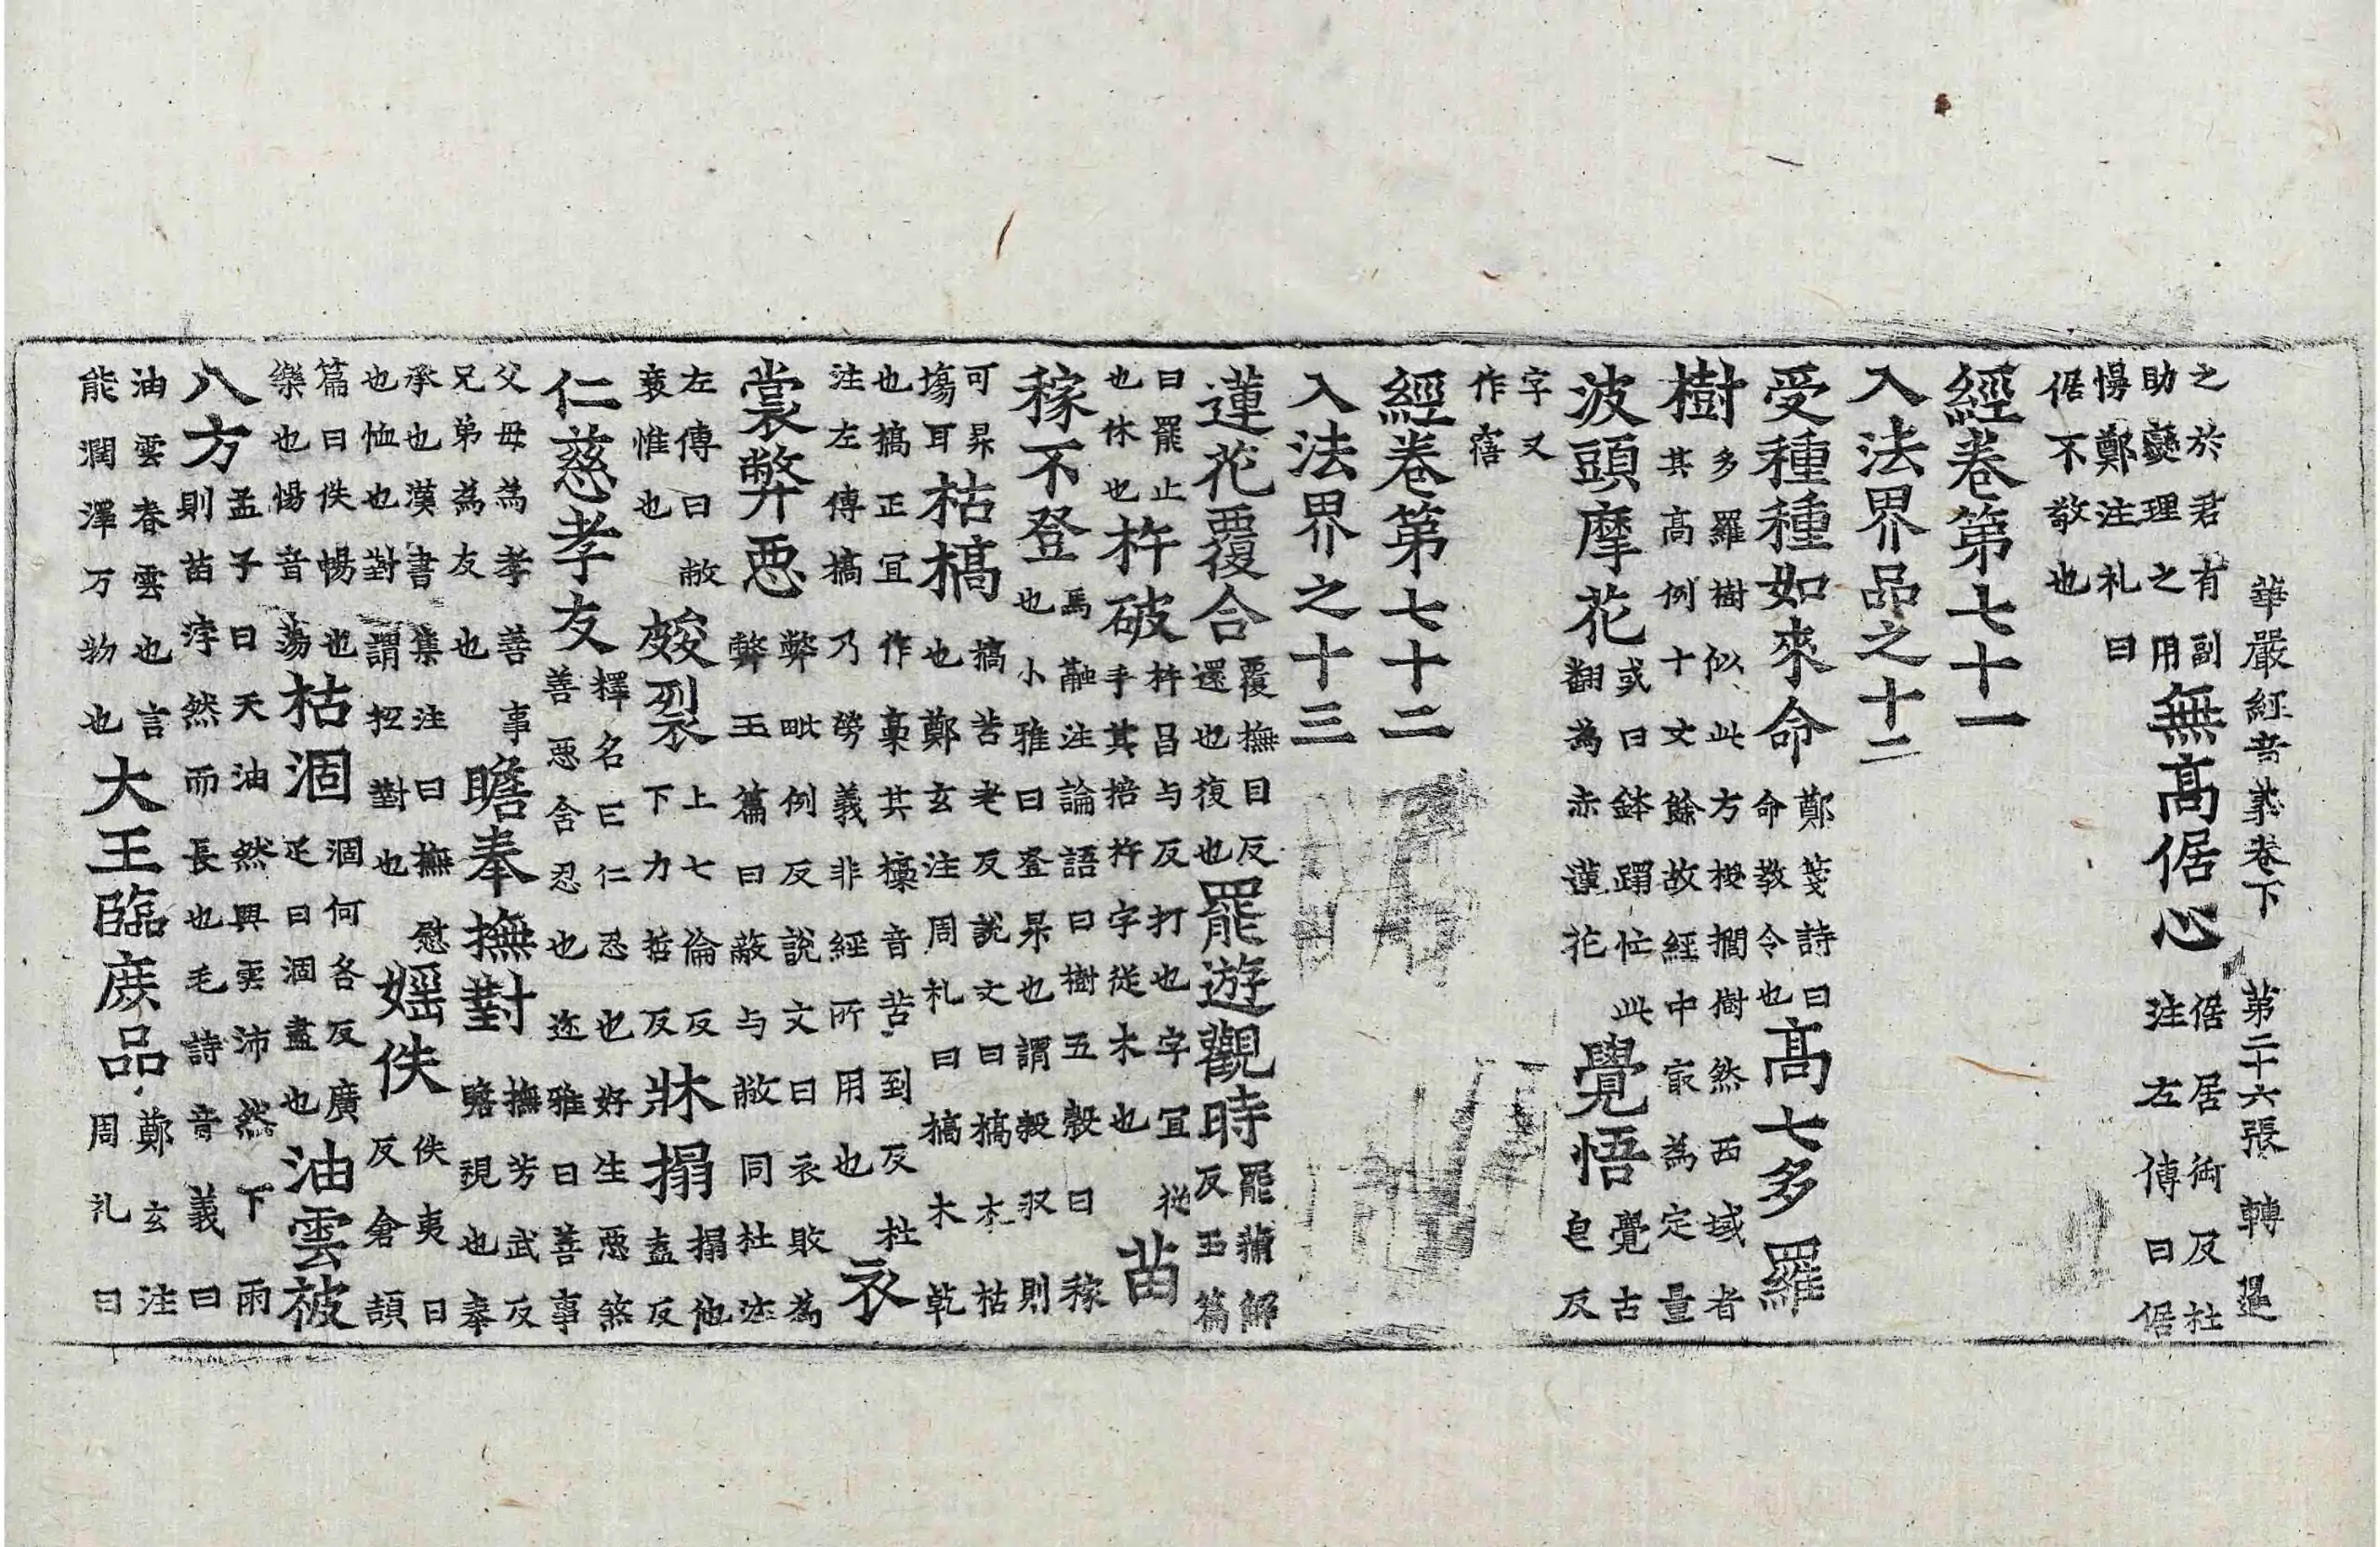 華嚴經音義卷下 第二十六張 轉
之於君有副助燮理之用無髙倨心倨居御反杜注左傳曰倨
慢鄭注礼曰倨不敬也
經卷第七十一
入法界品之十二
受種種如來命鄭箋詩曰命教令也髙七多羅
樹多羅樹似此方椶櫚樹然西域者其高例十丈餘故經中㝡為定量
波頭摩花或曰鉢蹋忙此翻為赤蓮花覺悟覺古皂反
字又作寤
經卷第七十二
入法界之十三
蓮花覆合覆撫目反還也復也罷遊觀時罷蒲解反玉篇
曰罷止也休也杵破杵昌与反打也字宜從手其掊杵字從木也苗
稼不登馬融注論語曰樹五穀曰稼也小雅曰登昇也謂穀収則
可昇場耳枯槁槁苦老反說文曰槁木枯也鄭玄注周礼曰槁木乾
也槁正宜作槀其槀音苦到反杜注左傳槁乃勞義非經所用也衣
裳弊惡弊毗例反說文曰衣敗為弊玉篇曰蔽与敝同杜注
左傳曰敝衰惟也皴裂上七倫反下力哲反牀搨搨他盍反
仁慈孝友釋名曰仁忍也好生惡煞善惡含忍也迩雅曰善事
父母為孝善事兄弟為友也瞻奉撫對撫芳武反瞻視也奉
承也漢書集注曰撫慰也恤也對謂抂對也婬佚佚夷日反倉頡
篇曰佚惕也樂也惕音蕩枯涸涸何各反廣疋曰涸盡也油雲被
八方孟子曰天油然興雲沛然下雨則苗浡然而長也毛詩音義曰
油雲春雲也言能潤澤万物也大王臨庻品鄭玄注周礼曰